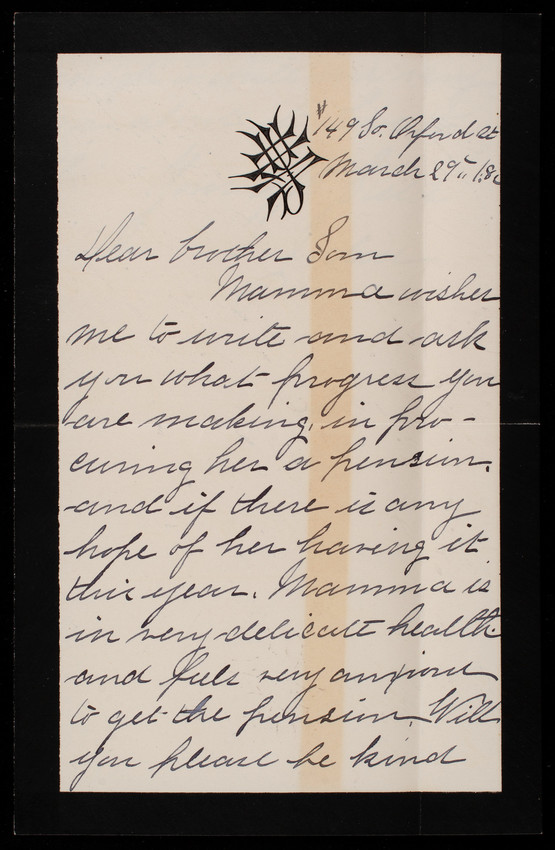 149 So. Oxford St
March 29th 18
Dear brother Tom
Mamma wishes
me to write and ask
you what progress you
are making, in pro-
curing her a pension.
and if there is any
hope of her having it
this year. Mamma is
in very delicate health
and feels very anxious
to get the pension. Will
you please be kind